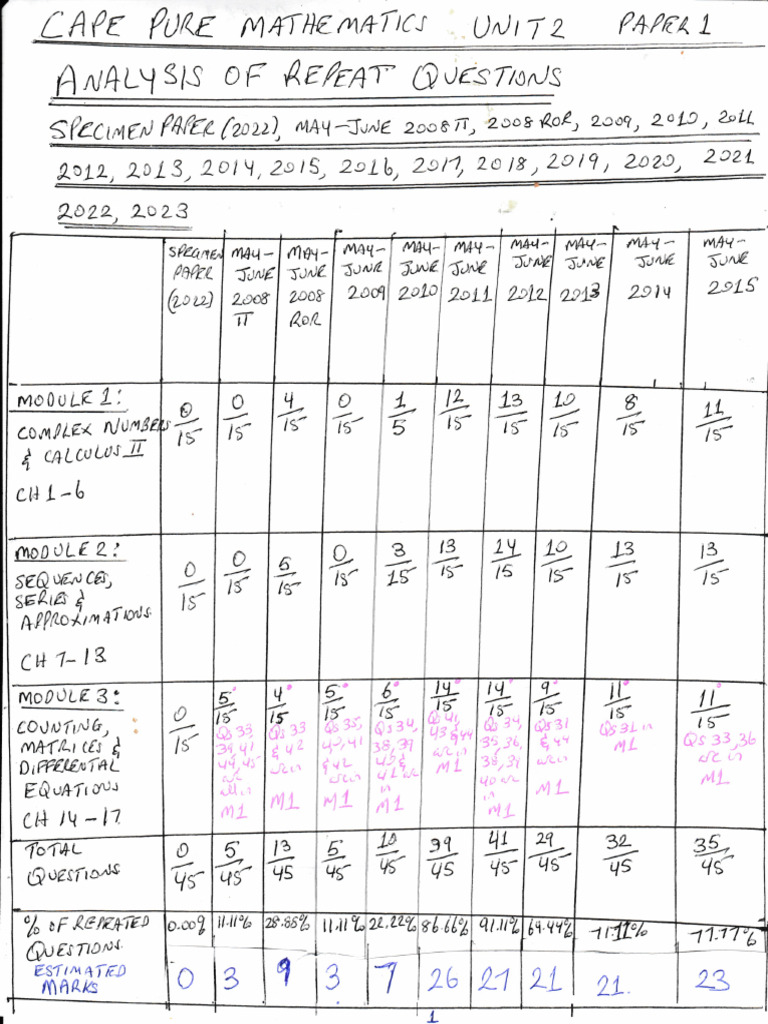 CAPE PURE MATHEMATICS UNIT 2 PAPER 1
ANALYSIS OF REPEAT QUESTIONS
SPECIMEN PAPER (2022), MAY-JUNE 2008 TT, 2008 ROR, 2009, 2010, 2011
2012, 2013, 2014, 2015, 2016, 2017, 2018, 2019, 2020, 2021
2022, 2023
SPECIMEN PAPER (2022)
MAY-JUNE 2008 TT
MAY-JUNE 2008 ROR
MAY-JUNE 2009
MAY-JUNE 2010
MAY-JUNE 2011
MAY-JUNE 2012
MAY-JUNE 2013
MAY-JUNE 2014
MAY-JUNE 2015
MODULE 1: 0/15 0/15 4/15 0/15 1/5 12/15 13/15 10/15 8/15 11/15
COMPLEX NUMBERS
& CALCULUS II
CH 1-6
MODULE 2: 0/15 0/15 5/15 0/15 3/15 13/15 14/15 10/15 13/15 13/15
SEQUENCES,
SERIES &
APPROXIMATIONS
CH 7-13
MODULE 3: 0/15 5/15 4/15 5/15 6/15 14/15 14/15 9/15 11/15 11/15
COUNTING,
MATRICES &
DIFFERENTAL
EQUATIONS
CH 14-17
Qs 33, 39, 41 44, 45 are all in M1
Qs 33 & 42 are in M1
Qs 35, 41 & 42 are in M1
Qs 34, 38, 39 are in M1
Qs 41, 43 & 44 are in M1
Qs 34, 35, 36, 38, 39 40 are in M1
Qs 31 & 44 are in M1
Qs 31 in M1
Qs 33, 36 are in M1
TOTAL QUESTIONS 0/45 5/45 13/45 5/45 10/45 39/45 41/45 29/45 32/45 35/45
% OF REPEATED QUESTIONS 0.00% 11.11% 28.88% 11.11% 22.22% 86.66% 91.11% 64.44% 71.11% 77.77%
ESTIMATED MARKS 0 3 9 3 7 26 27 21 21. 23
1